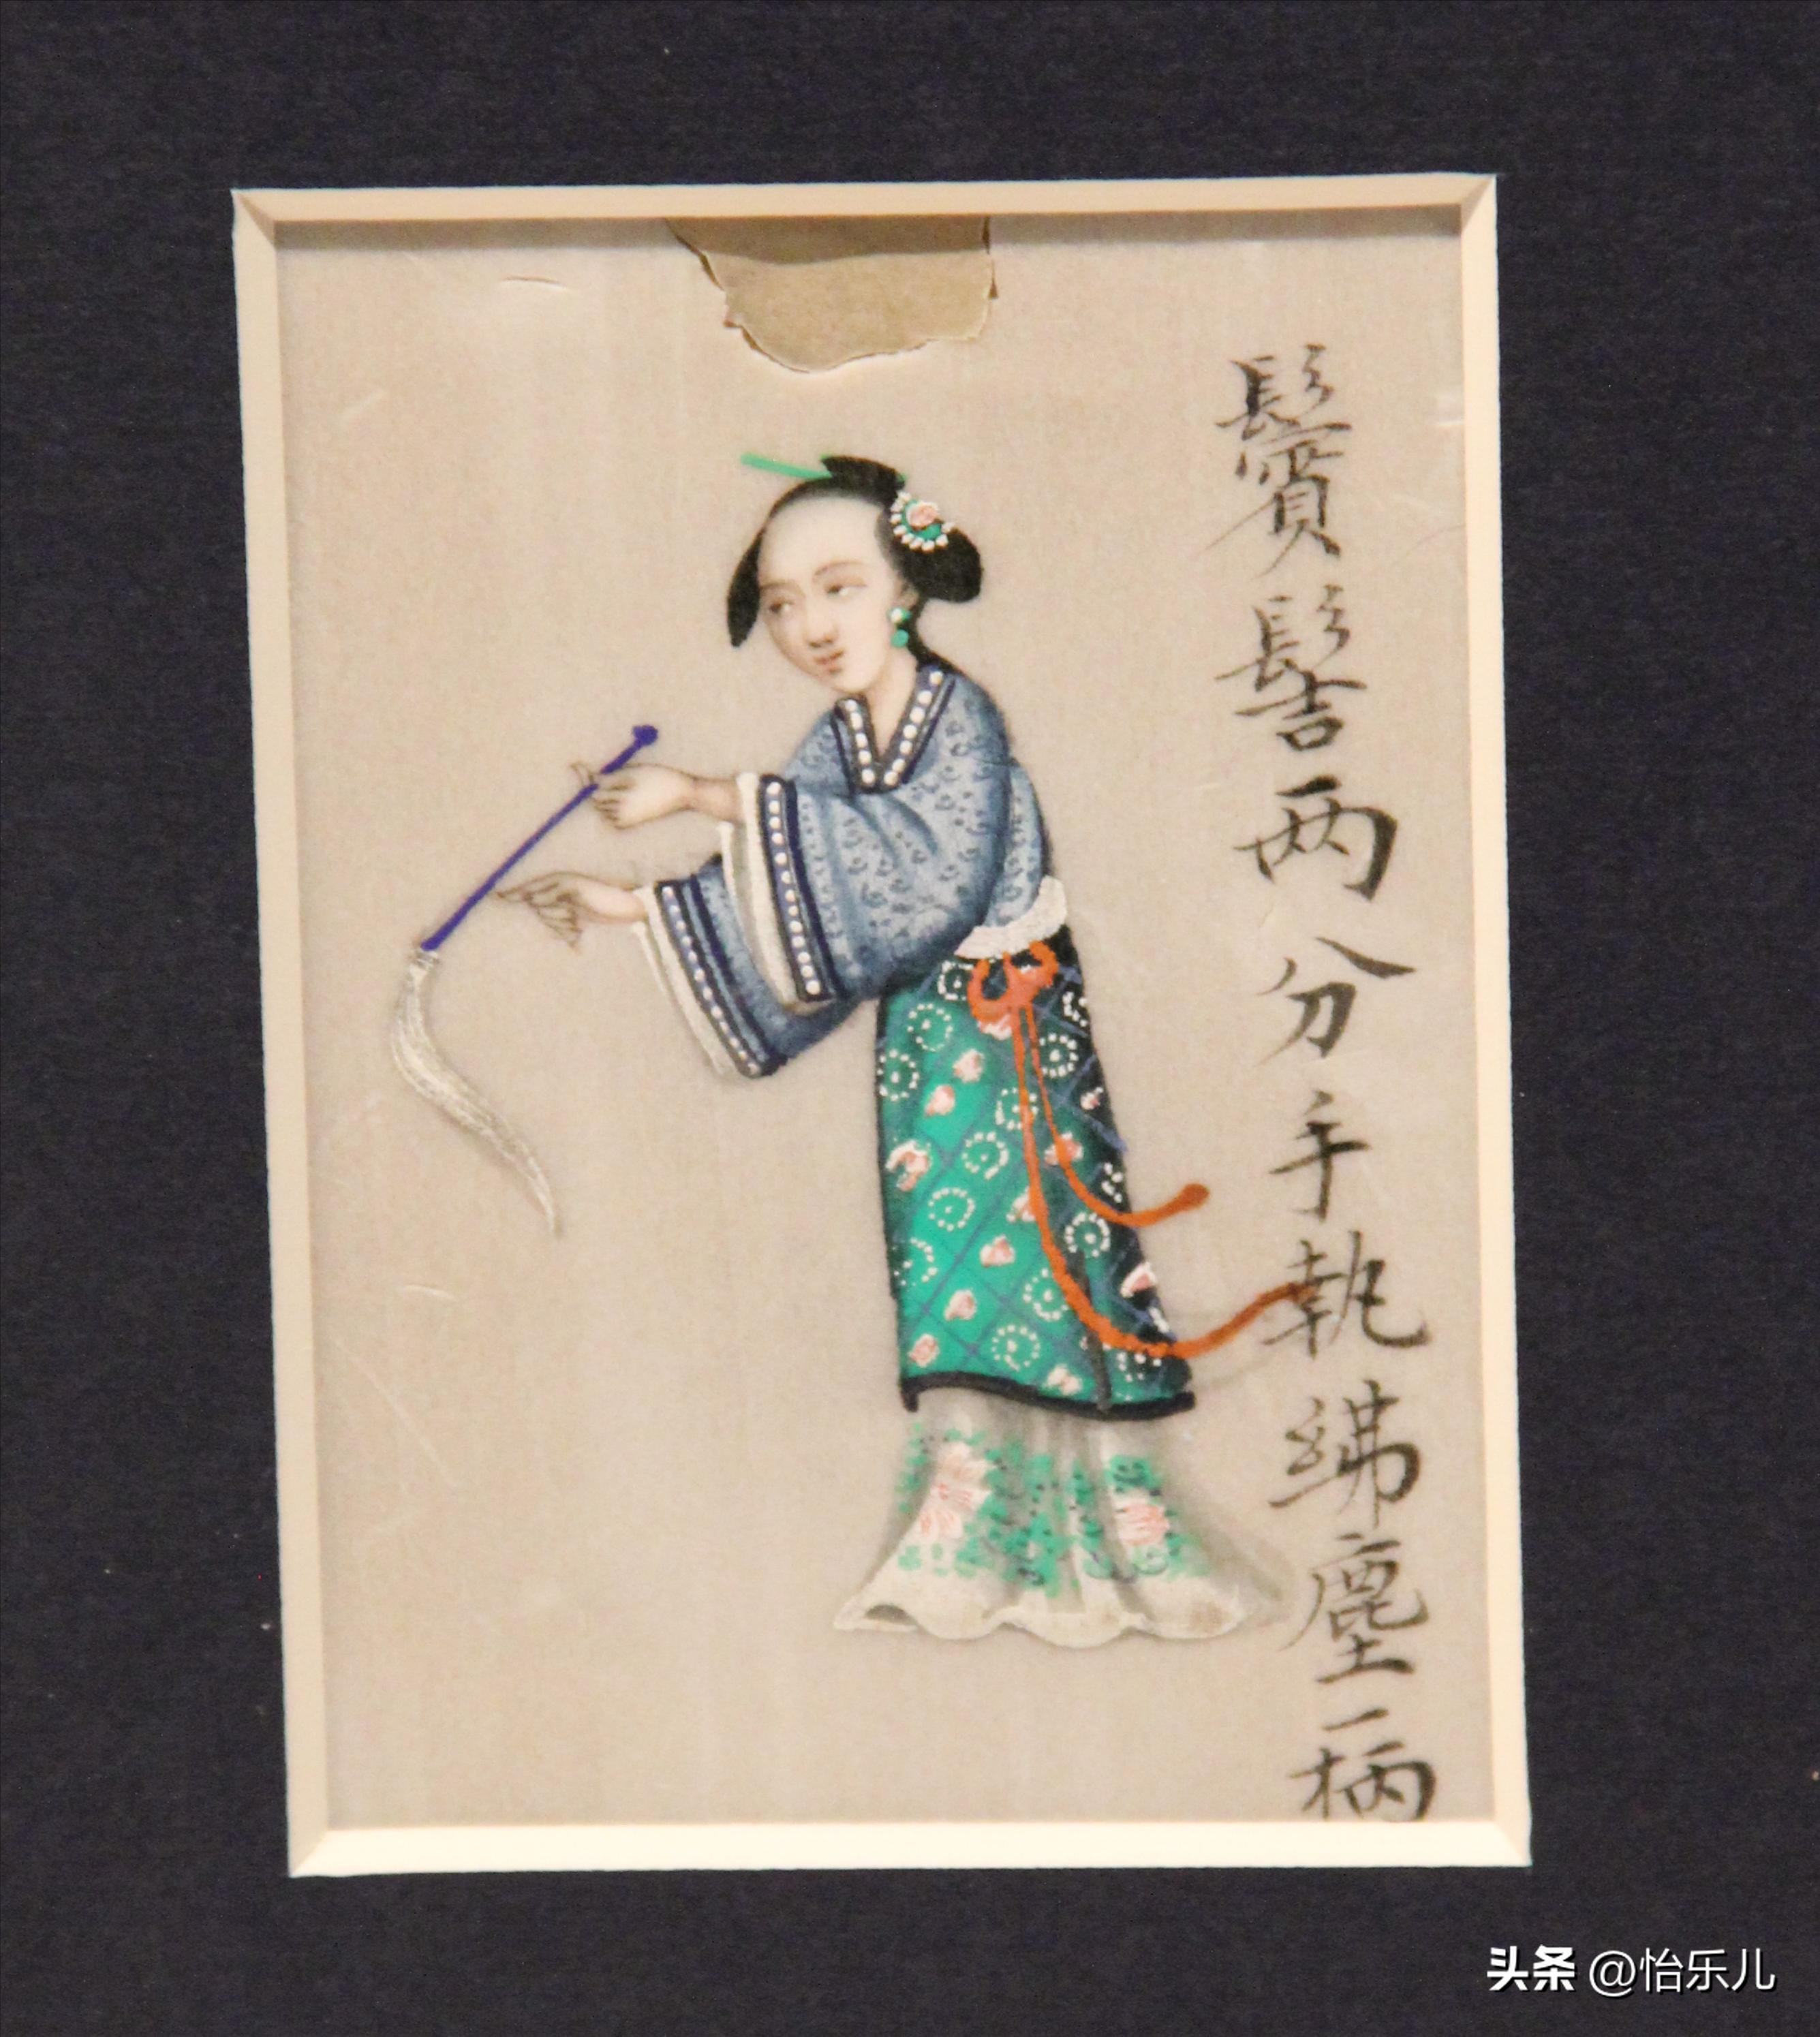 鬢髻两分手執紼塵一柄
头条 @怡乐儿